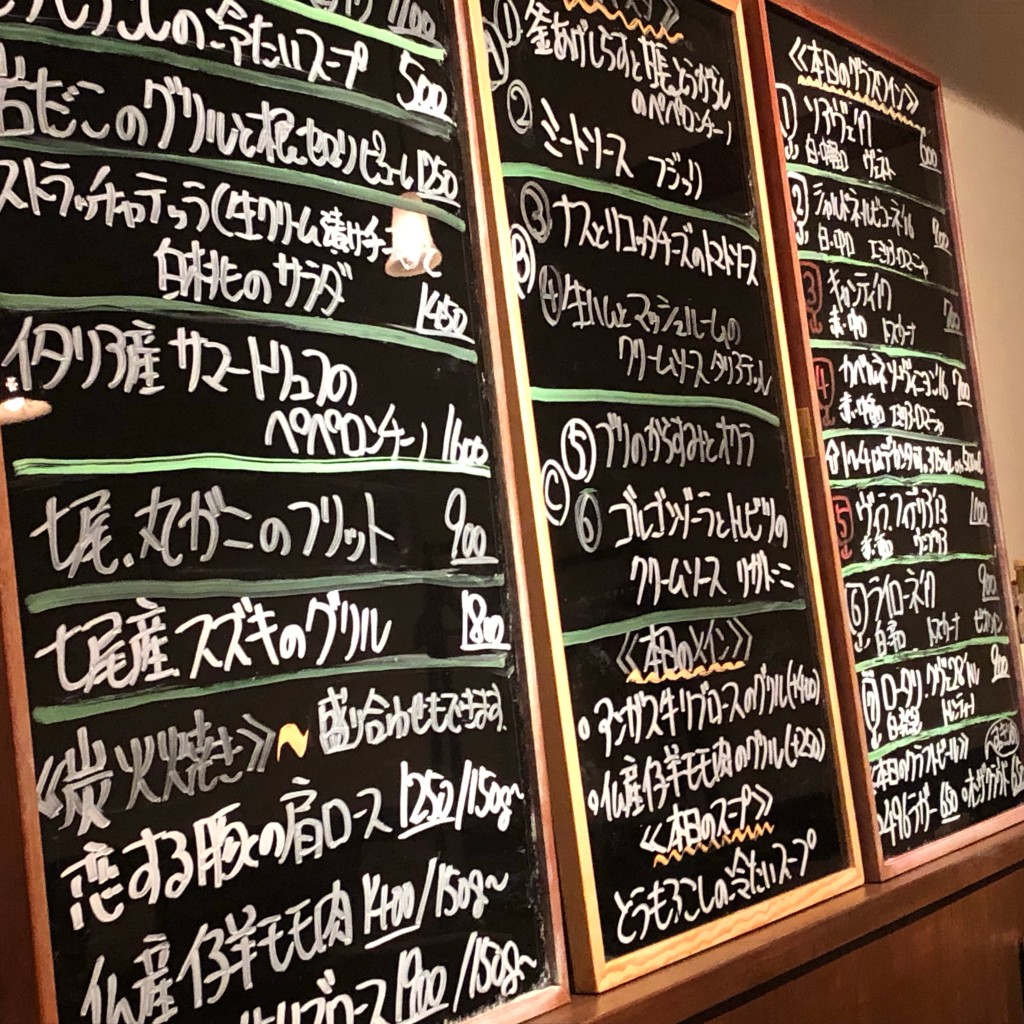 1100
とうもろこしの冷たいスープ 500
岩だこのグリルと根セロリピューレ 1250
ストラッチャテッラ(生クリーム漬けチーズ)と
白桃のサラダ 1450
イタリア産 サマートリュフの
ペペロンチーノ 1600
七尾.丸ガニのフリット 900
七尾産 スズキのグリル 1800
《炭火焼き》〜盛り合わせもできます
恋する豚の肩ロース 1250/150g〜
仏産 仔羊モモ肉 1400/150g〜
牛リブロース 1900/150g〜
Ⓐ ① 釜あげしらすと
のペペロンチーノ
② ミートソース フジッリ
Ⓑ ③ ナスとリコッタチーズのトマトソース
④ 生ハムとマッシュルームの
クリームソース タリアテッレ
Ⓒ ⑤ ブリのからすみとオクラ
⑥ ゴルゴンゾーラとトレビスの
クリームソース リガトーニ
《本日のメイン》
・アンガス牛リブロースのグリル(+400)
・仏産仔羊モモ肉のグリル(+250)
《本日のスープ》
とうもろこしの冷たいスープ
《本日のグラスワイン》
1 ソアヴェ 600
白・中 ヴェネト
2 シャルドネ 700
白・中 エミリア・ロマーニャ
3 キャンティ 700
赤・中 トスカーナ
4 カベルネソーヴィニヨン16 700
赤・中 エミリア・ロマーニャ
※1〜4はデカンタ 375ml 500ml
5 1100
赤
6 900
白 トスカーナ
7 ロータリ 900
《本日のグラスビール》
・496ラガー 650